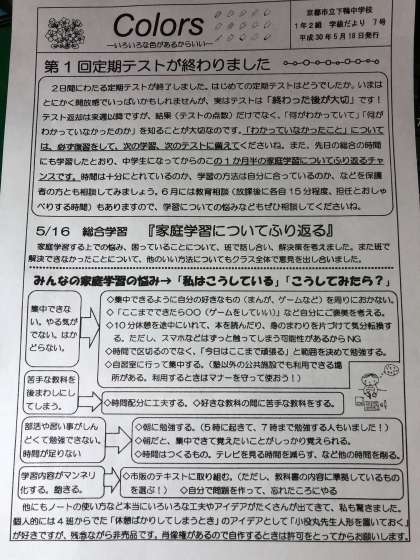 Colors
―いろいろな色があるからいい―
京都市立下鴨中学校
1年2組 学級だより 7号
平成30年5月18日発行
第1回定期テストが終わりました
2日間にわたる定期テストが終了しました。はじめての定期テストはどうでしたか。いまは
とにかく開放感でいっぱいかもしれませんが、実はテストは「終わった後が大切」です!
テスト返却は来週以降ですが、結果(テストの点数)だけでなく、「何がわかっていて」「何が
わかっていなかったのか」を知ることが大切なのです。「わかっていなかったこと」について
は、必ず復習をして、次の学習、次のテストに備えてくださいね。また、先日の総合の時間
にも学習したとおり、中学生になってからのこの1か月半の家庭学習についてふり返るチャ
ンスです。時間は十分にとれているのか、学習の方法は自分に合っているのか、などを保護
者の方とも相談してみましょう。6月には教育相談(放課後に各自15分程度、担任とおしゃ
べりする時間)もありますので、学習についての悩みなどもぜひ相談してくださいね。
5/16 総合学習 『家庭学習についてふり返る』
家庭学習する上での悩み、困っていることについて、班で話し合い、解決策を考えました。また班で
解決できなかったことについて、他のいい方法についてもクラス全体で意見を出し合いました。
みんなの家庭学習の悩み→「私はこうしている」「こうしてみたら?」
集中できな
い。やる気が
でない。はか
どらない。
◇集中できるように自分の好きなもの(まんが、ゲームなど)を周りにおかない。
◇「ここまでできたら〇〇(ゲームをしていい)」など自分にご褒美を考える。
◇10分休憩を途中にいれて、本を読んだり、身のまわりを片づけて気分転換す
る。ただし、スマホなどはずっと触ってしまう可能性があるからNG
◇時間で区切るのでなく、「今日はここまで頑張る」と範囲を決めて勉強する。
◇自習室に行って集中する。(塾以外の公共施設でも利用できる場
所がある。利用するときはマナーを守って使おう!)
苦手な教科を
後まわしにし
てしまう。
◇時間配分に工夫する。◇好きな教科の間に苦手な教科をする。
部活や習い事がしん
どくて勉強できない。
時間が足りない
◇朝に勉強する。(5時に起きて、7時まで勉強する人もいました!)
◇朝だと、集中できて覚えたいことがしっかり覚えられる。
◇時間はつくるもの。テレビを見る時間を減らす、など他の時間を削る。
学習内容がマンネリ
化する。飽きる。
◇市販のテキストに取り組む。(ただし、教科書の内容に準拠しているもの
を選ぶ!) ◇自分で問題を作って、忘れたころにやる
他にもノートの使い方など本当にいろいろな工夫やアイデアがたくさんが出てきて、私も驚きました。
個人的には4班からでた「休憩ばかりしてしまうとき」のアイデアとして「小役丸先生人形を置いておく」
が好きですが、残念ながら非売品です。肖像権があるので自作するときは許可をとってからお願いします。